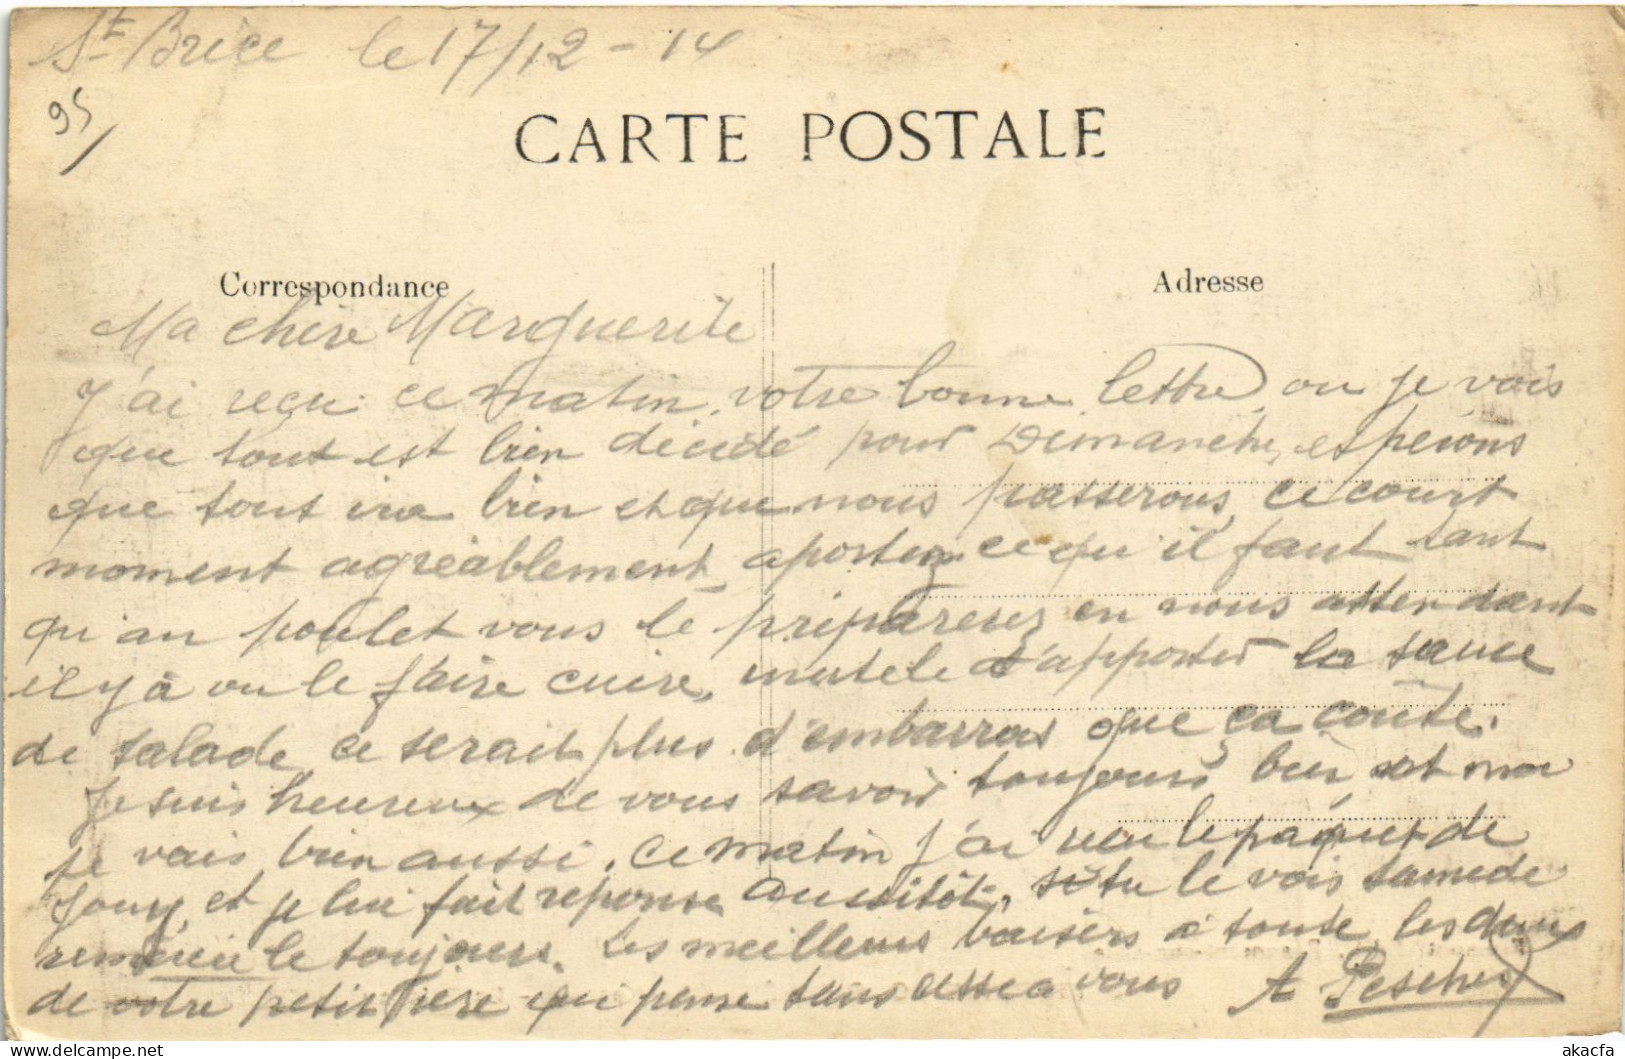 St Brice le 17/12 - 14
95/
CARTE POSTALE
Correspondance
Adresse
Ma chère Marguerite
J'ai reçu ce matin votre bonne lettre ou je vois
que tout est bien décidé pour Dimanche, espérons
que tout ira bien et que nous passerons ce court
moment agréablement, aportez ce qu'il faut tant
qu'au poulet vous le préparerez en nous attendant
il y à ou le faire cuire, inutele d'apporter la sauce
de salade ce serait plus d'embarras que ça coûte.
Je suis heureux de vous savoir toujours bien et moi
je vais bien aussi. Ce matin j'ai reçu le paquet de
Jouy et je lui fait réponse aussitôt, si tu le vois samedi
remercie le toujours. Les meilleurs baisers à toute les deux
de votre petit Père qui pense sans cesse a vous A Pescher
akacfa